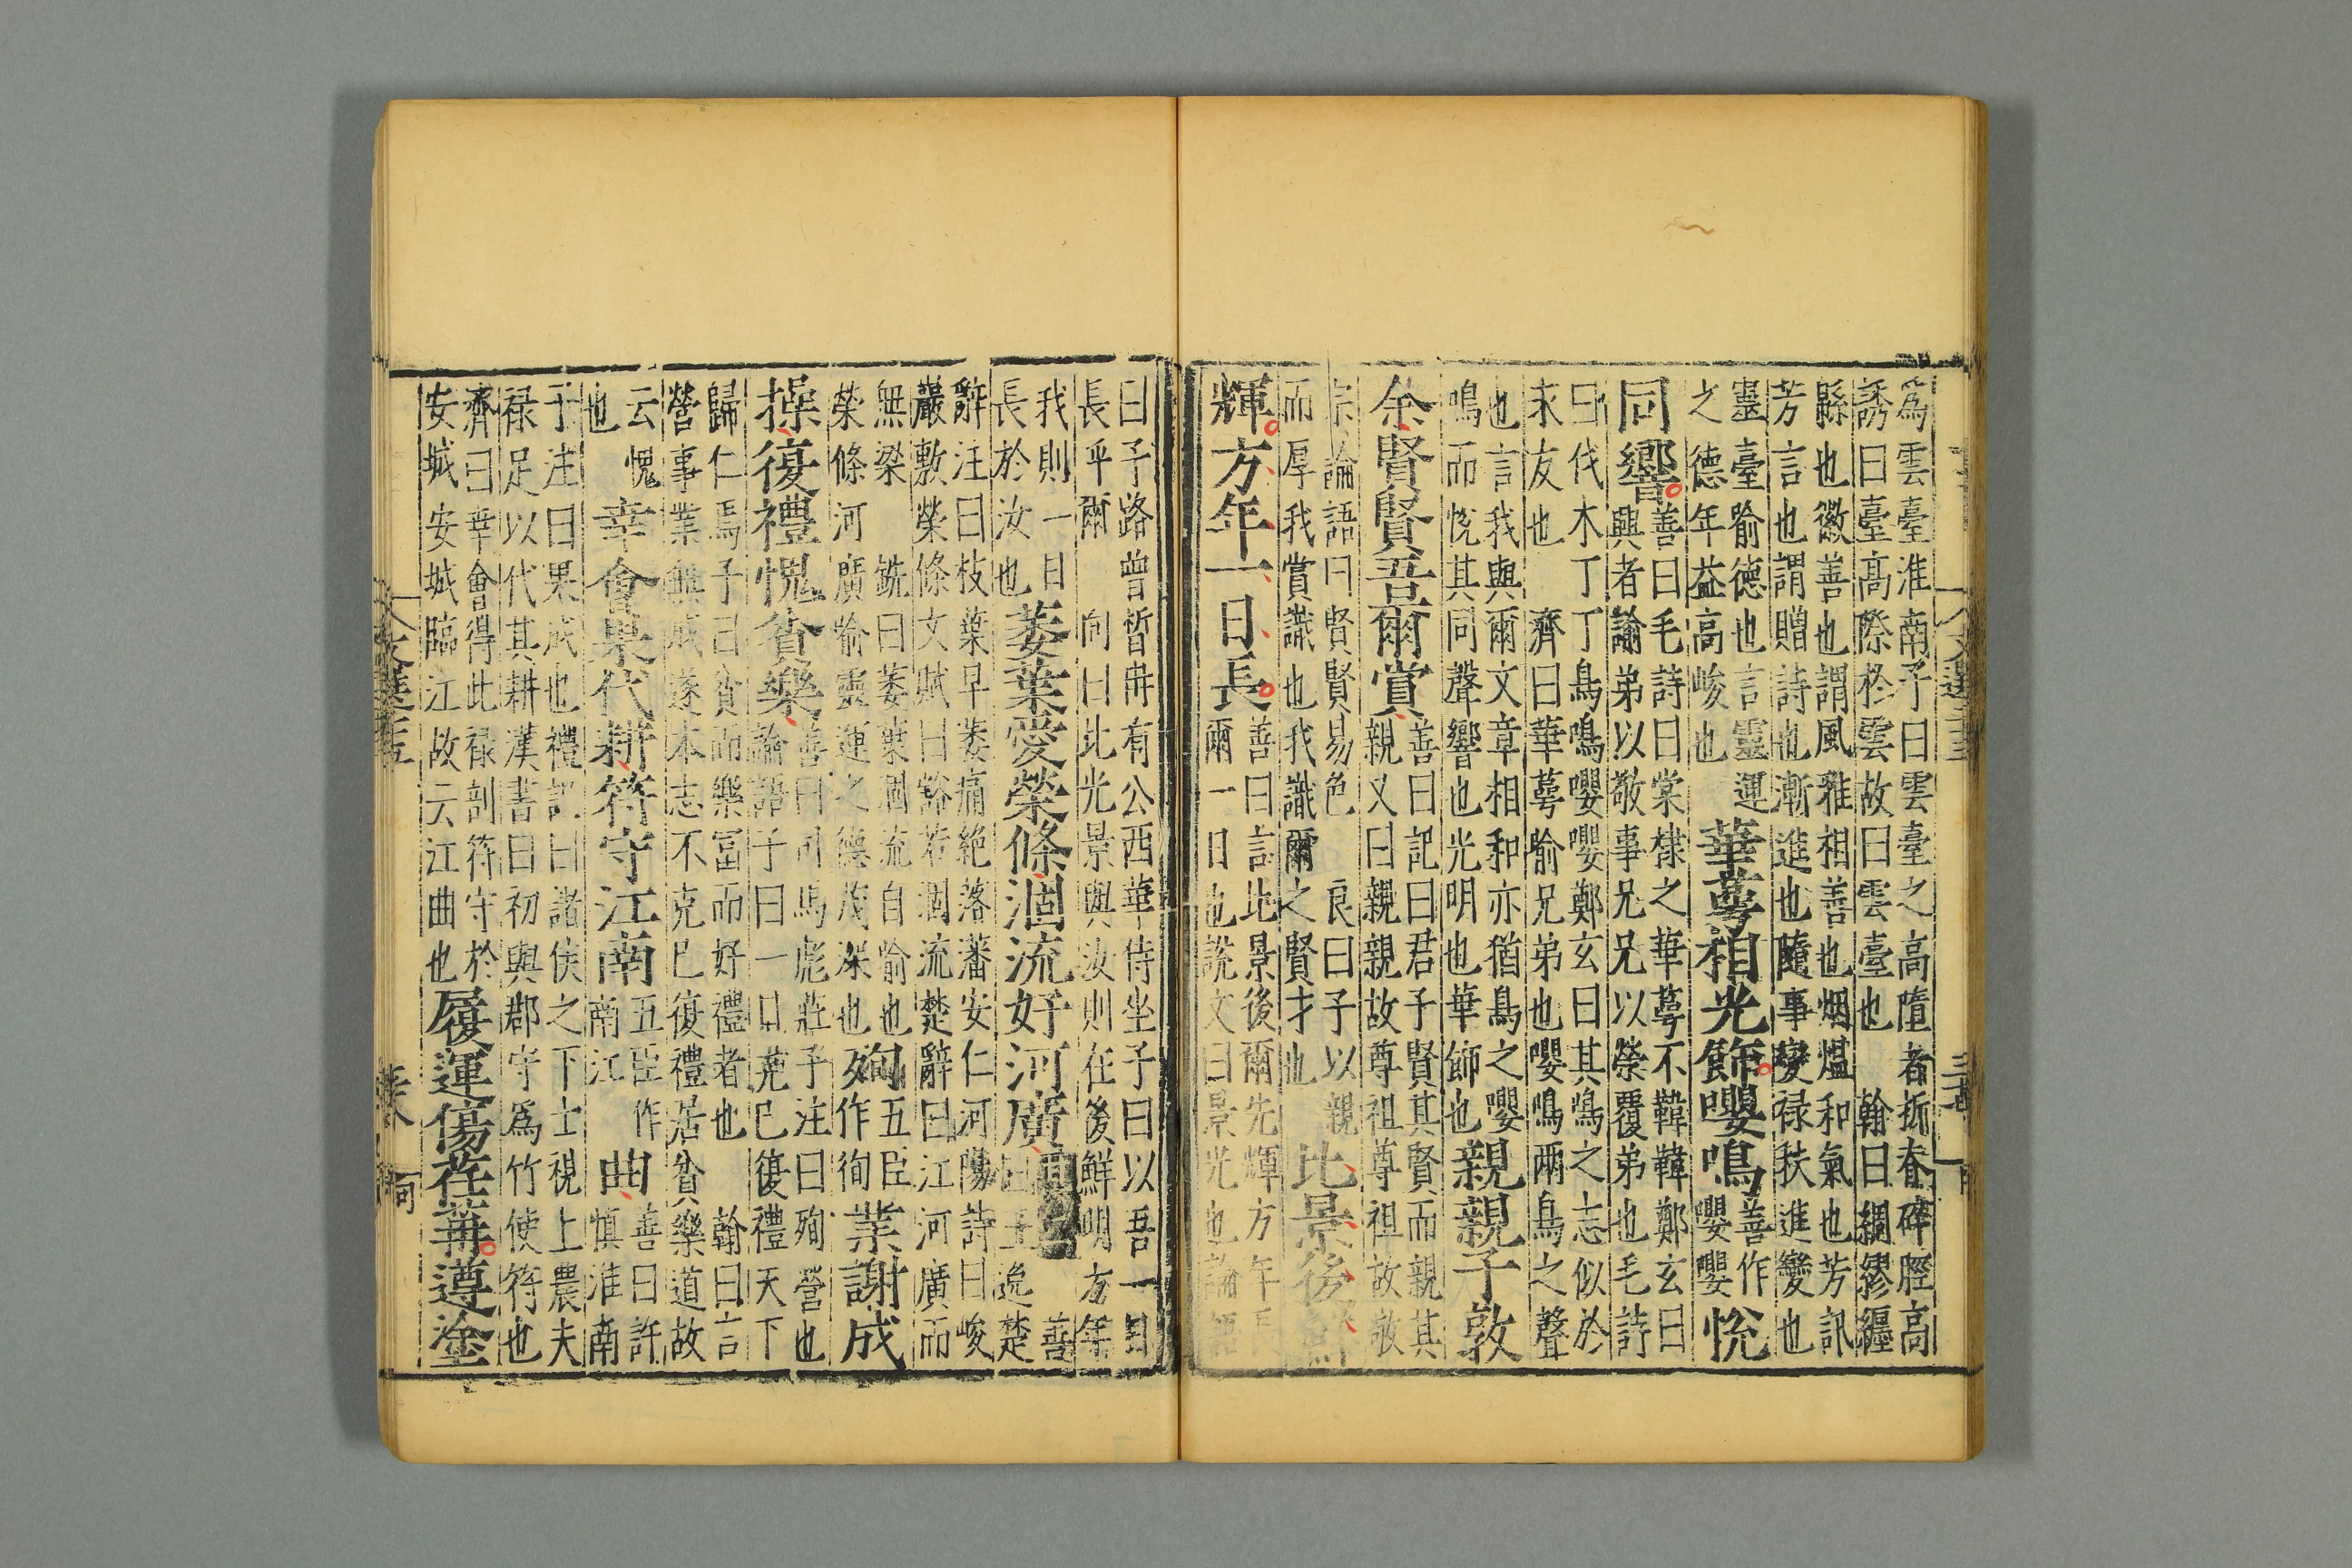 爲雲臺淮南子曰雲臺之高墮者折脊碎脛高
誘曰臺高際於雲故曰雲臺也 翰曰綢繆纏
緜也徽善也謂風雅相善也烟熅和氣也芳訊
芳言也謂贈詩也漸進也隨事變祿秩進變也
靈臺喻德也言靈運
之德年益高峻也
華萼相光飾嚶鳴
善作
嚶嚶
悅
同響
善曰毛詩曰棠棣之華萼不韡韡鄭玄曰
興者喻弟以敬事兄兄以榮覆弟也毛詩
曰伐木丁丁鳥鳴嚶嚶鄭玄曰其鳴之志似於
求友也 濟曰華萼喻兄弟也嚶鳴兩鳥之聲
也言我與爾文章相和亦猶鳥之嚶
鳴而悅其同聲響也光明也華飾也
親親子敦
余賢賢吾爾賞
善曰記曰君子賢其賢而親其
親又曰親親故尊祖尊祖故敬
宗論語曰賢賢易色 良曰子以親
而厚我賞識也我識爾之賢才也
比景後鮮
輝方年一日長
善曰言此景後爾先輝方年長
爾一日也說文曰景光也論語
曰子路曾晳冉有公西華侍坐子曰以吾一日
長乎爾 向曰此光景與汝則在後鮮明方年
我則一日
長於汝也
萎葉愛榮條涸流好河廣
善
曰王逸楚
辭注曰枝葉早萎痛絕落潘安仁河陽詩曰峻
巖敷榮條文賦曰豁若涸流楚辭曰江河廣而
無梁 銑曰萎葉涸流自喻也
榮條河廣喻靈運之德茂深也
殉
五臣
作徇
業謝成
操復禮愧貧樂
善曰司馬彪莊子注曰殉營也
論語子曰一日克己復禮天下
歸仁焉子曰貧而樂冨而好禮者也 翰曰言
營事業無成遂本志不克己復禮居貧樂道故
云愧
也
幸會果代耕符守江南
五臣作
南江
曲
善曰許
慎淮南
子注曰果成也禮記曰諸侯之下士視上農夫
祿足以代其耕漢書曰初與郡守爲竹使符也
濟曰幸會得此祿剖符守於
安城安城臨江故云江曲也
履運傷荏苒遵塗